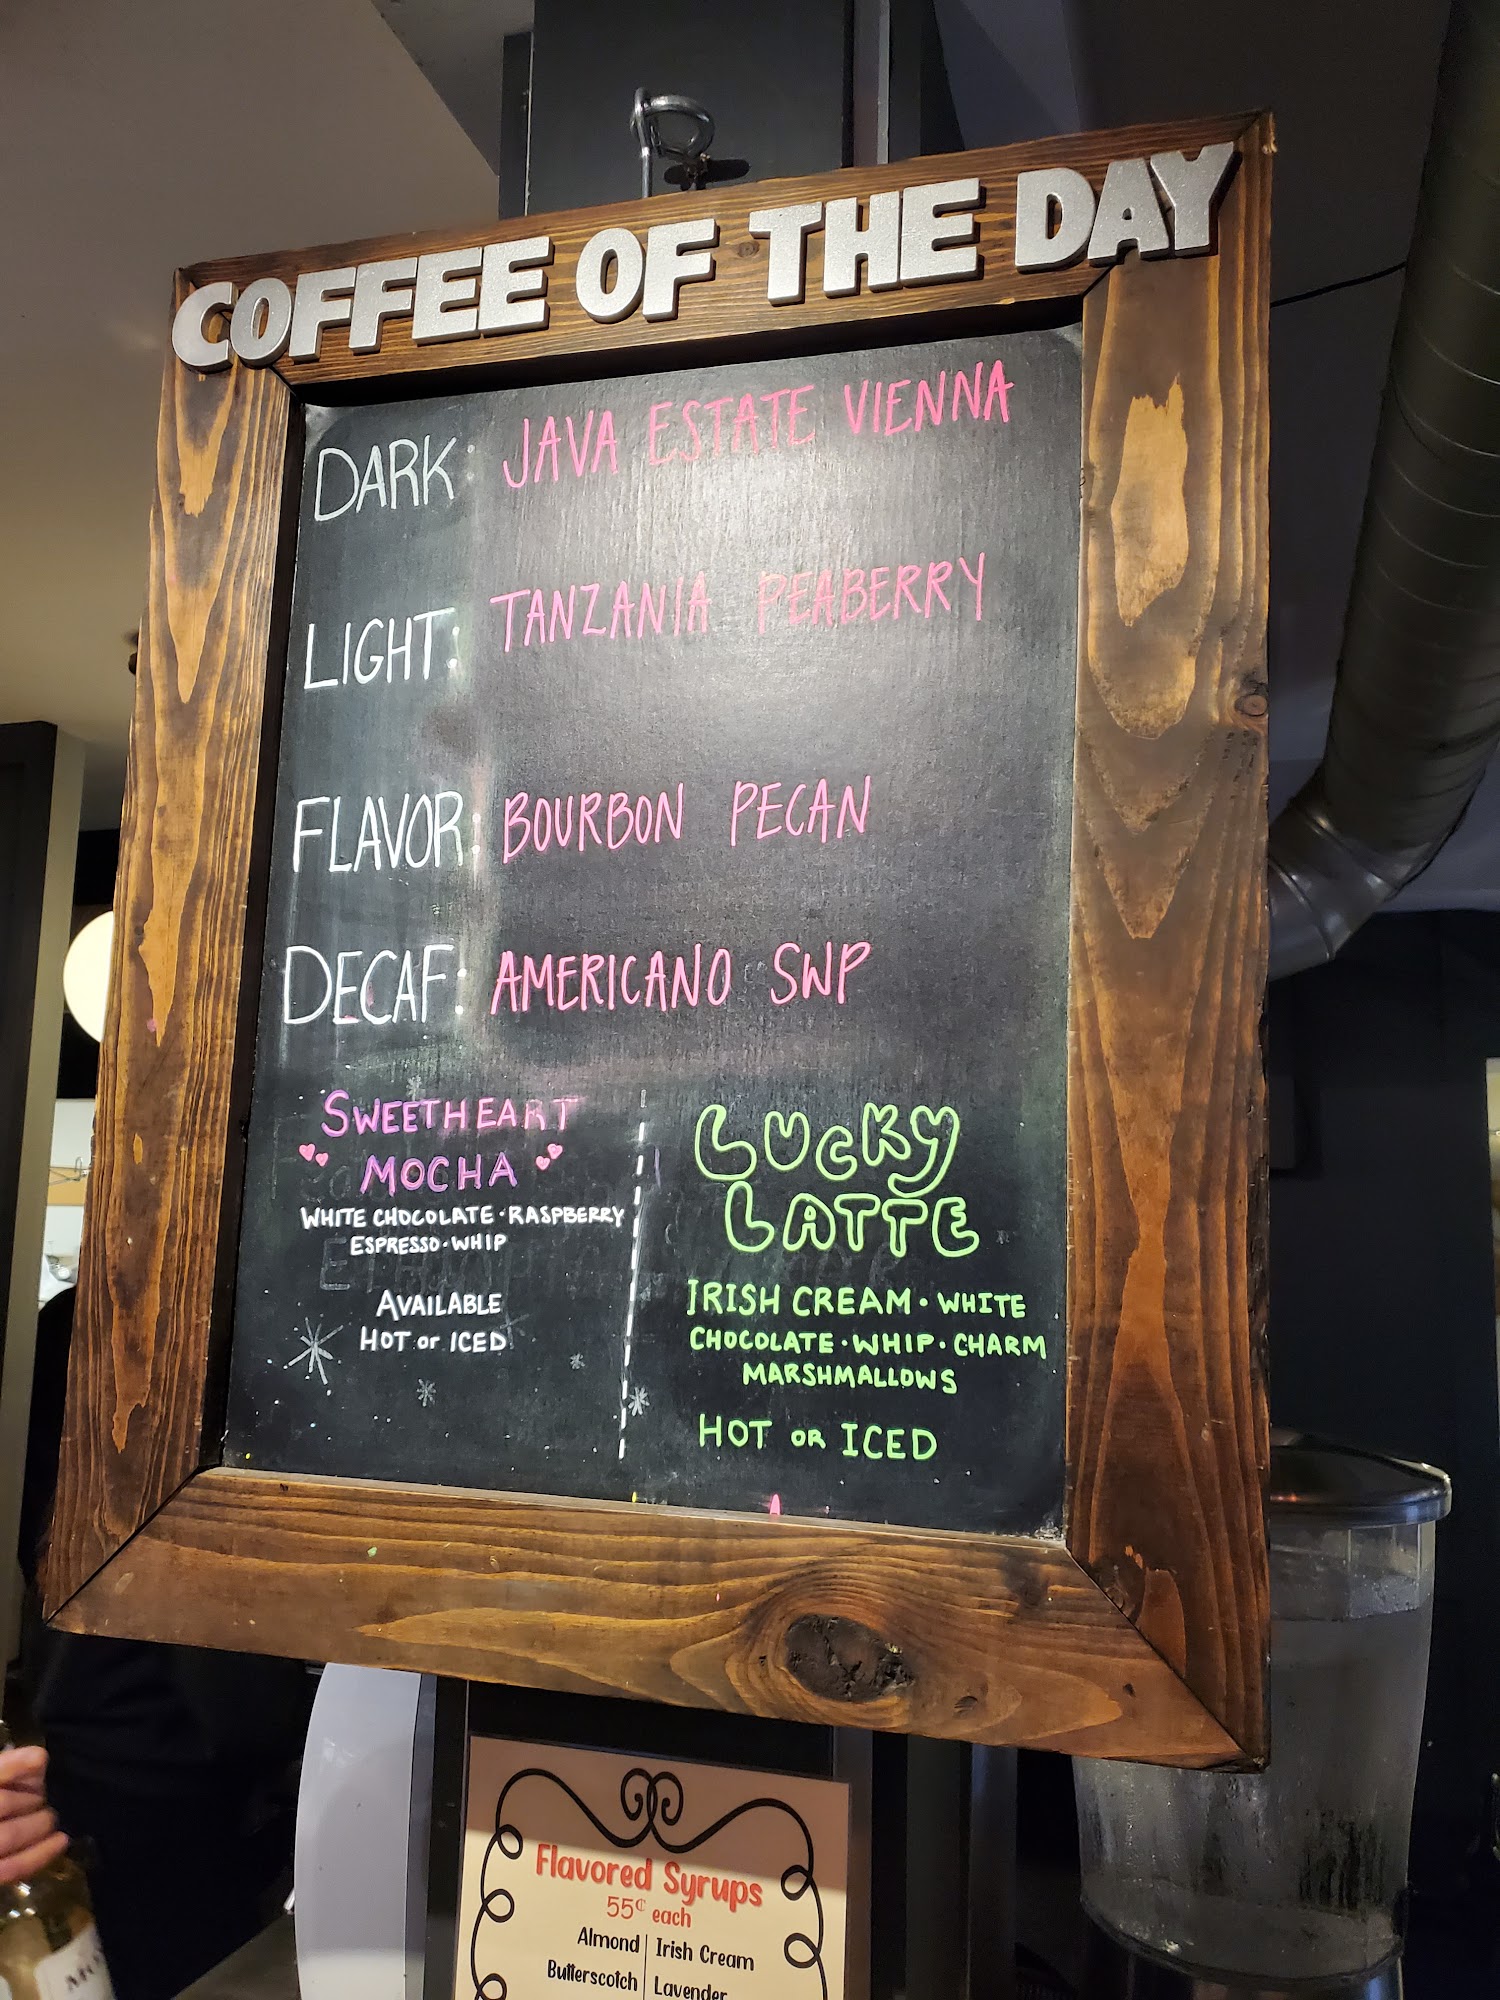 COFFEE OF THE DAY
DARK: JAVA ESTATE VIENNA
LIGHT: TANZANIA PEABERRY
FLAVOR: BOURBON PECAN
DECAF: AMERICANO SWP
SWEETHEART
MOCHA
WHITE CHOCOLATE · RASPBERRY
ESPRESSO · WHIP
AVAILABLE
HOT or ICED
LUCKY
LATTE
IRISH CREAM · WHITE
CHOCOLATE · WHIP · CHARM
MARSHMALLOWS
HOT OR ICED
Flavored Syrups
55¢ each
Almond | Irish Cream
Butterscotch | Lavender